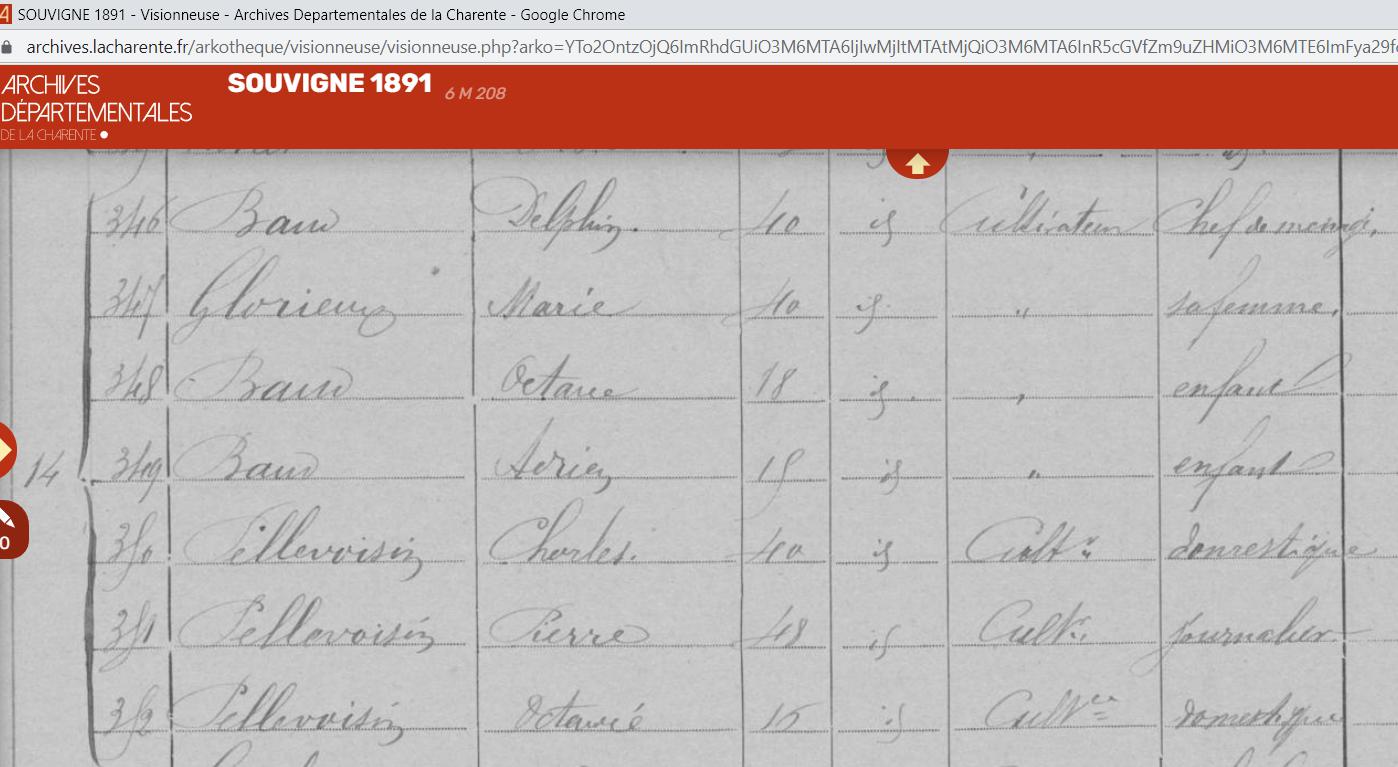 SOUVIGNE 1891 - Visionneuse - Archives Departementales de la Charente - Google Chrome
archives.lacharente.fr/arkotheque/visionneuse/visionneuse.php?arko=
ARCHIVES
DÉPARTEMENTALES
DE LA CHARENTE
SOUVIGNE 1891 6 M 208
346 Baud Delphin. 40 id Cultivateur Chef de menage.
347 Glorieux Marie 40 id " sa femme.
348 Baud Octavie 18 id " enfant
14 349 Baud Adrien 15 id " enfant
350 Pellevoisin Charles. 40 id Cultr domestique
351 Pellevoisin Pierre 48 id Cultr journalier
352 Pellevoisin Octavie id domestique
0